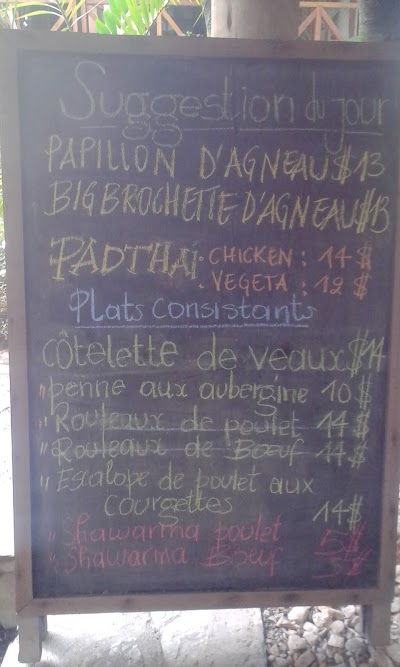 Suggestion du jour
PAPILLON D'AGNEAU $13
BIG BROCHETTE D'AGNEAU $13
PADTHAÏ • CHICKEN : 14 $
• VEGETA : 12 $
Plats Consistants
CÔtelette de veaux $14
" penne aux aubergine 10 $
" Rouleaux de poulet 14 $
" Rouleaux de Bœuf 14 $
" Escalope de poulet aux
courgettes 14 $
" Shawarma poulet 5 $
" Shawarma Bœuf 5 $